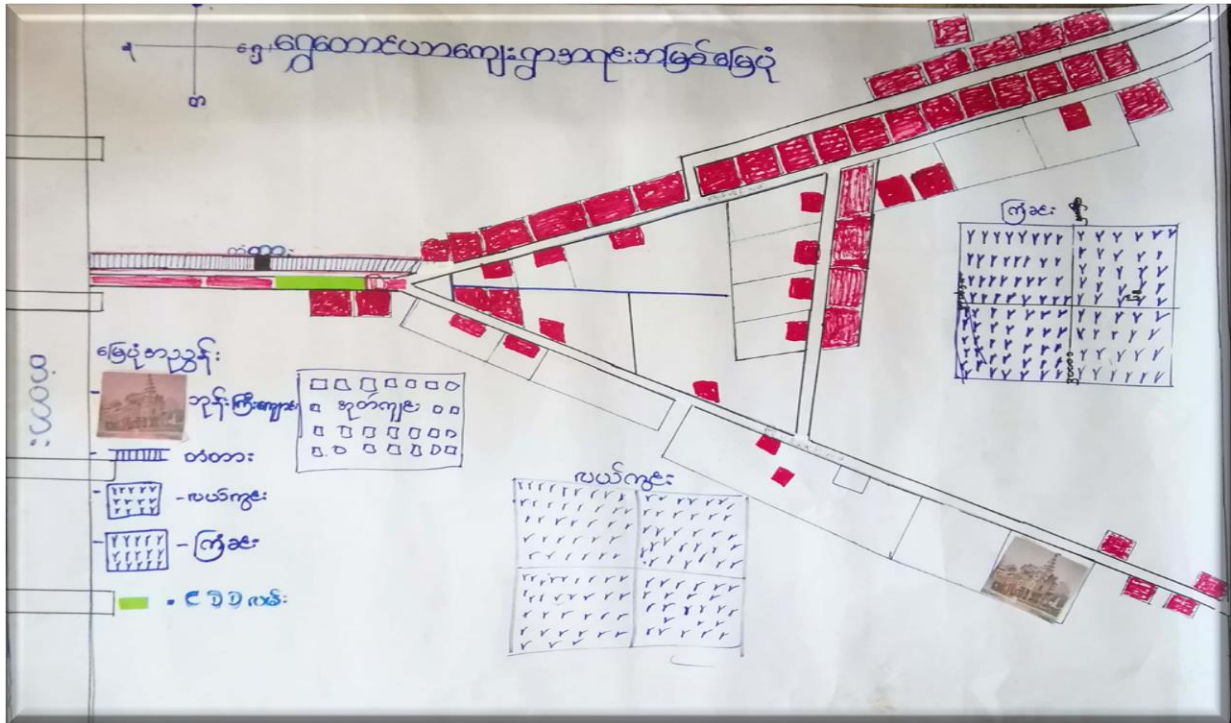 ရွှေတောင်ယာကျေးရွာအရင်းအမြစ်မြေပုံ
တံတား
ကြံခင်း
မြေပုံအညွှန်း
ဘုန်းကြီးကျောင်း
အုတ်ကျင်း
တံတား
-လယ်ကွင်း
- ကြံခင်း
လယ်ကွင်း